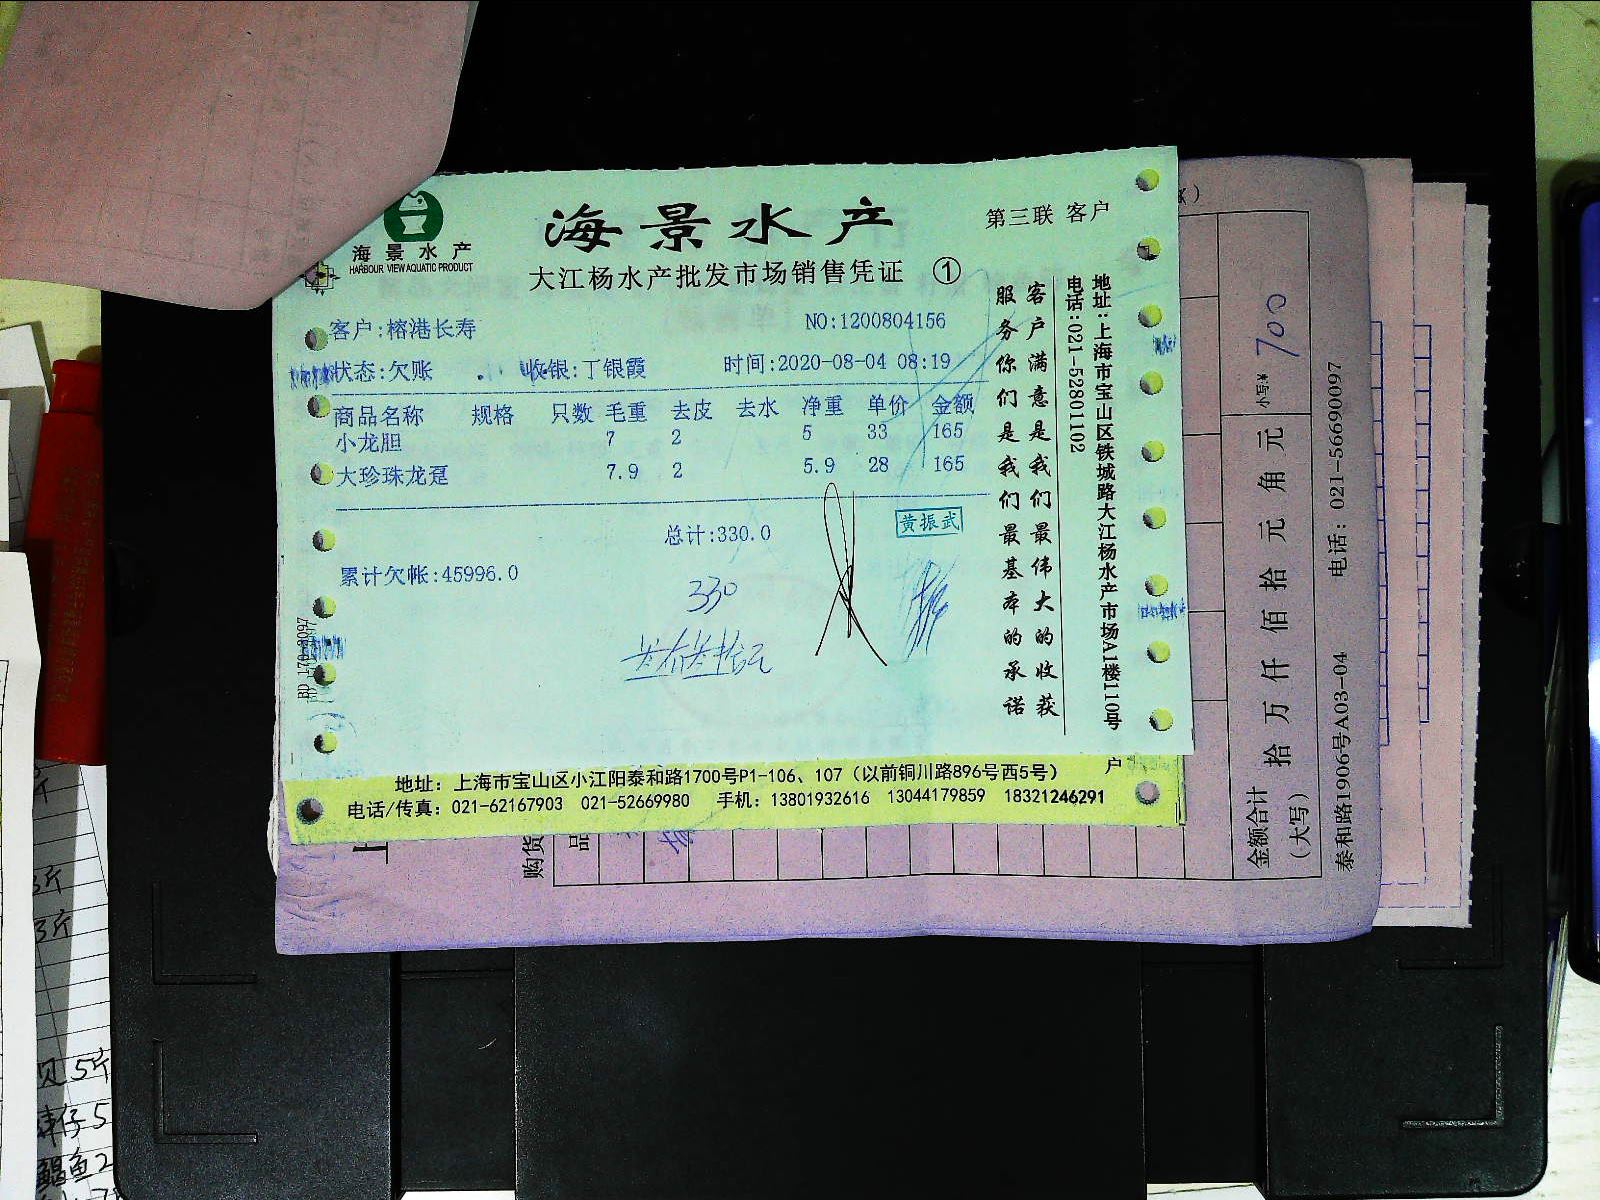 海景水产
HARBOUR VIEW AQUATIC PRODUCT
海景水产
第三联 客户
大江杨水产批发市场销售凭证 ①
客户:榕港长寿 NO:1200804156
状态:欠账 收银:丁银霞 时间:2020-08-04 08:19
商品名称 规格 只数 毛重 去皮 去水 净重 单价 金额
小龙胆 7 2 5 33 165
大珍珠龙趸 7.9 2 5.9 28 165
总计:330.0
黄振武
累计欠帐:45996.0
330
客户满意是我们最伟大的收获
服务你们是我们最基本的承诺
地址:上海市宝山区铁城路大江杨水产市场A1楼110号
电话:021-52801102
户
地址：上海市宝山区小江阳泰和路1700号P1-106、107（以前铜川路896号西5号）
电话/传真：021-62167903 021-52669980 手机：13801932616 13044179859 18321246291
购货
品
金额合计
（大写）
拾万仟佰拾元角元
小写:¥ 700
泰和路1906号A03-04 电话：021-56690097
3斤
3斤
贝5斤
5
鲳鱼2